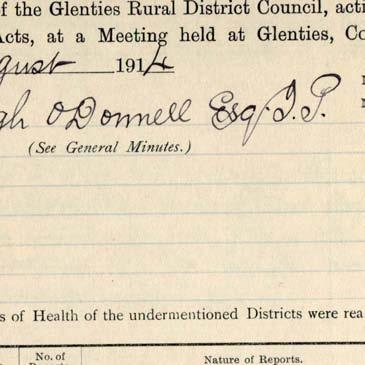 of the Glenties Rural District Council, acti
Acts, at a Meeting held at Glenties, Co
gust 1914
gh O'Donnell Esq J.P.
(See General Minutes.)
s of Health of the undermentioned Districts were rea
No. of
Nature of Reports.